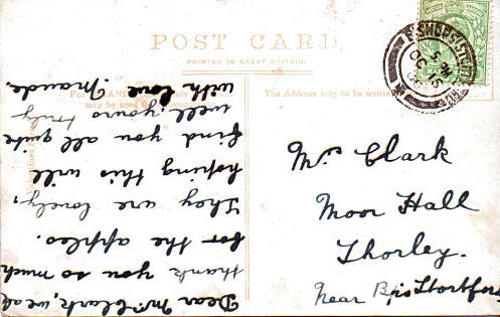 POST CARD.
PRINTED IN GREAT BRITAIN.
For
may be used
The Address only to be written
Dear Mrs Clark, we all
thank you so much
for the apples.
They are lovely,
hoping this will
find you all quite
well yours truly
with love Maude.
Mrs Clark
Moor Hall
Thorley.
Near Stortford
OC 15